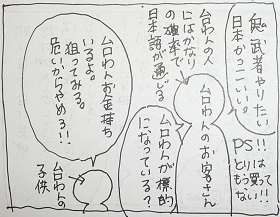 鬼武者やりたい!!
日本かっこいい。
は買って!!
PS
もうない
ムロわんのお客さん
ムロわんの人
にはかなり
の確率で
日本語が通じる
ムロわんが標的
になっている?
ムロわんお金持ち
いるよ。
狙ってみろ。
危いからやめろ!!
ムロわんの
子供